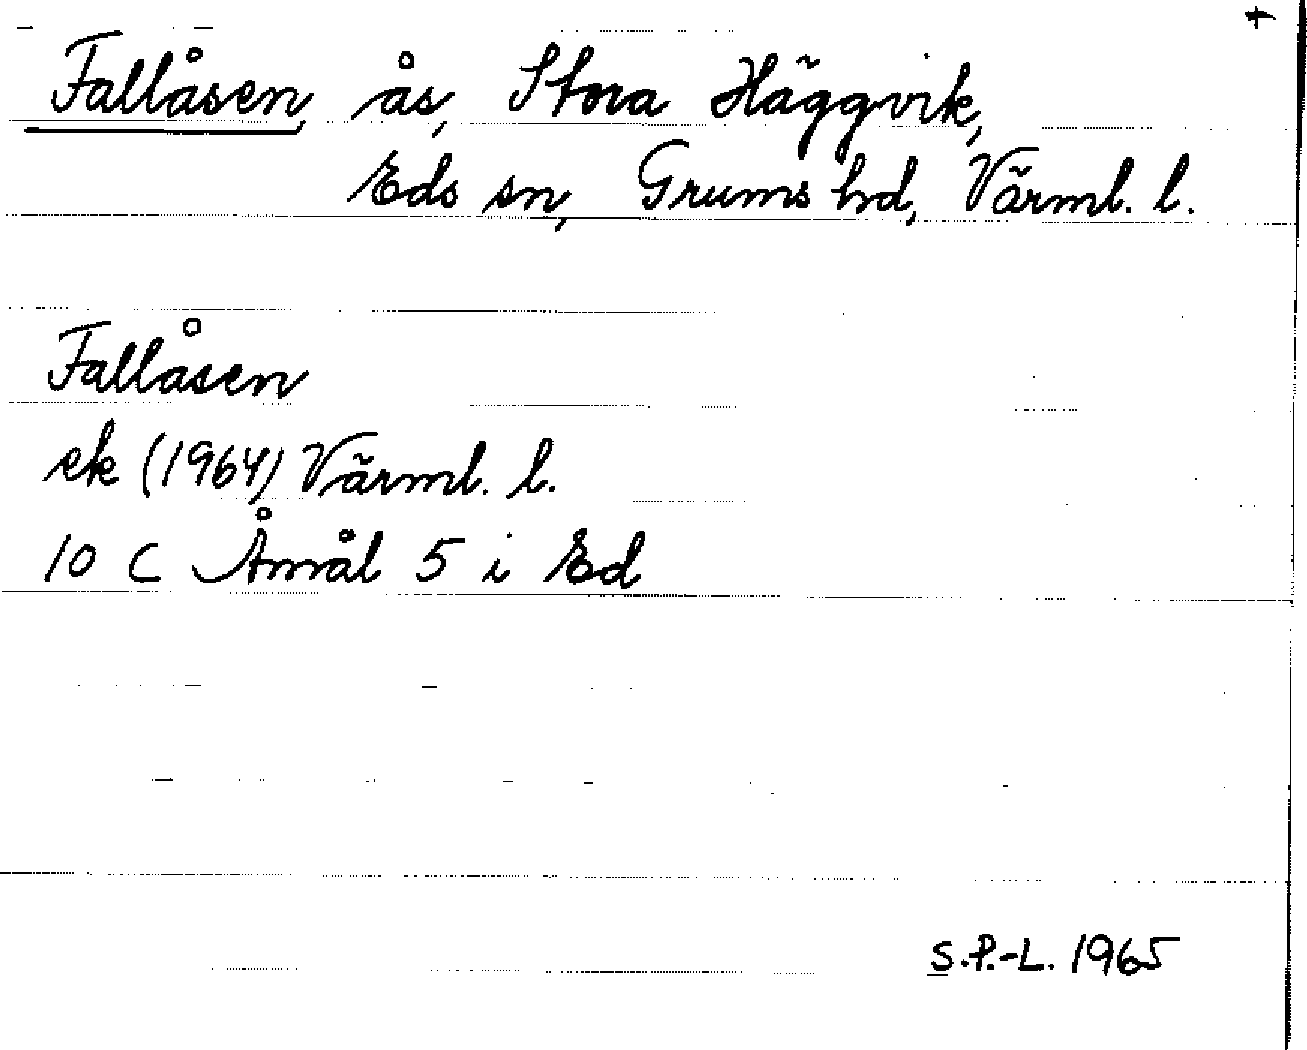 +
Fallåsen, ås, Stora Häggvik,
Eds sn, Grums hd, Värml. l.
Fallåsen
ek (1964) Värml. l.
10 C Åmål 5 i Ed
S.P.-L. 1965